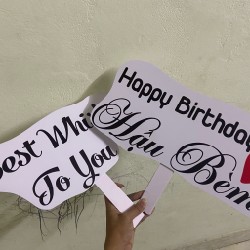 Best Whi
To You
Happy Birthday
Hậu Bèm